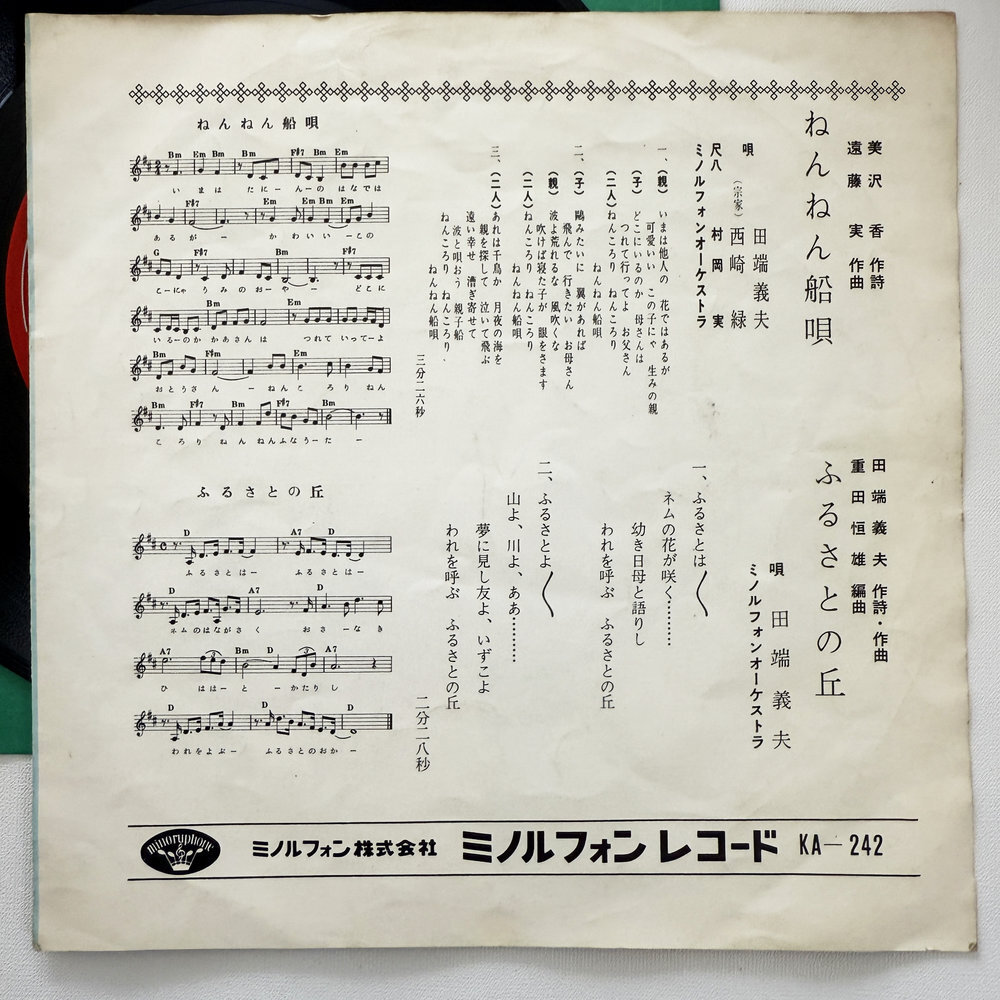 ねんねん船唄
美沢 香 作詩
遠藤 実 作曲
唄 田端義夫
(宗家) 西崎 緑
尺八 村岡 実
ミノルフォンオーケストラ
一、(親) いまは他人の 花ではあるが
可愛いい この子にゃ 生みの親
(子) どこにいるのか 母さんは
つれて行ってよ お父さん
(二人) ねんころり ねんころり
ねんねん船唄
二、(子) 鷗みたいに 翼があれば
飛んで 行きたい お母さん
(親) 波よ荒れるな 風吹くな
吹けば寝た子が 眼をさます
(二人) ねんころり ねんころり
ねんねん船唄
三、(二人) あれは千鳥か 月夜の海を
親を探して 泣いて飛ぶ
遠い幸せ 漕ぎ寄せて
波と唄おう 親子船
ねんころり ねんころり
ねんねん船唄
三分二六秒
ねんねん船唄
Bm Em Bm Bm F#7 Bm Em Bm
いまは たにーんーの はなでは
F#7 Em Em Bm
あるが ー かわいい ーこの
G F#7 Bm F#7
こーにゃ うみのおーやー どこに
Bm Em
いるーのか かあさんは つれて いってーよ
Bm F#m Em
おとうさん ー ねんころ りねん
Bm F#7 Bm F#7 Bm
ころり ねんねんふなうーたー
ふるさとの丘
田端義夫 作詩・作曲
重田恒雄 編曲
唄 田端義夫
ミノルフォンオーケストラ
一、ふるさとは〱
ネムの花が咲く………
幼き日母と語りし
われを呼ぶ ふるさとの丘
二、ふるさとよ〱
山よ、川よ、ああ………
夢に見し友よ、いずこよ
われを呼ぶ ふるさとの丘
二分二八秒
ふるさとの丘
D A7 D
ふるさとはー ふるさとはー
D A7 Em
ネムのはながさく おさーなき
A7 Bm D A7
ひ ははーと ーかたりし
D D
われをよぶー ふるさとのおかー
minoryphone
ミノルフォン株式会社 ミノルフォンレコード KA—242